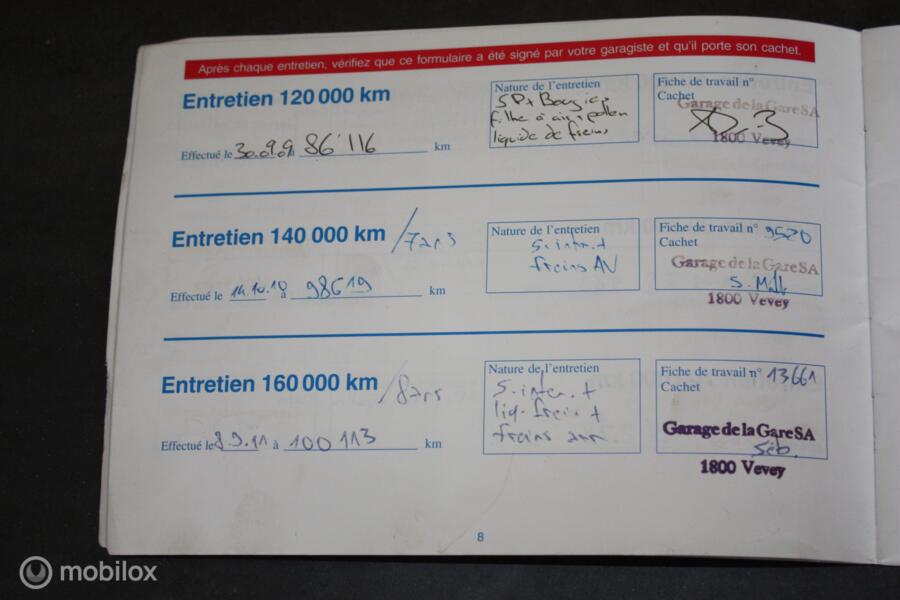 Après chaque entretien, vérifiez que ce formulaire a été signé par votre garagiste et qu'il porte son cachet.
Entretien 120 000 km
Effectué le 30.09.09 à 86'116 km
Nature de l'entretien
SP+ Bougies
filtre à air + pollen
liquide de freins
Fiche de travail n°
Cachet
Garage de la Gare SA
1800 Vevey
Entretien 140 000 km /7ans
Effectué le 14.10.10 à 98619 km
Nature de l'entretien
S. inter. +
freins AV
Fiche de travail n° 9520
Cachet
Garage de la Gare SA
1800 Vevey
Entretien 160 000 km /8ans
Effectué le à 100113 km
Nature de l'entretien
S. inter. +
liq. frein +
freins arr.
Fiche de travail n° 13661
Cachet
Garage de la Gare SA
Séb.
1800 Vevey
8
mobilox